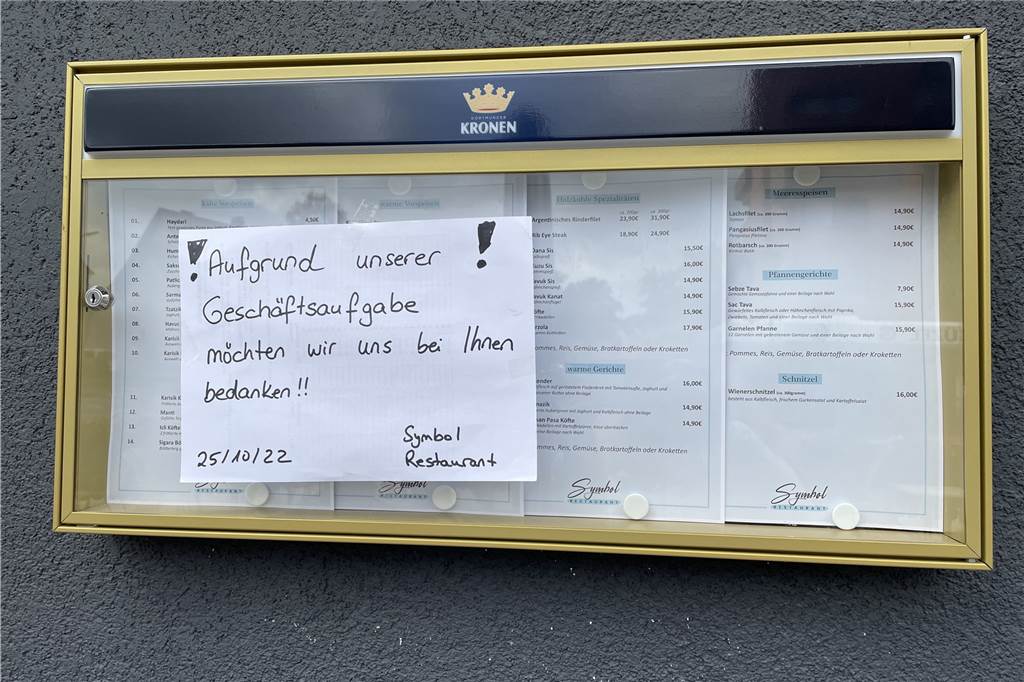 DORTMUNDER
KRONEN
kalte Vorspeisen
01. Haydari 4,50€
02.
03.
04.
05.
06.
07.
08.
09.
10.
11.
12. Manti
13. Icli Köfte
14. Sigara
Symbol
RESTAURANT
! Aufgrund unserer !
Geschäftsaufgabe
möchten wir uns bei Ihnen
bedanken!!
25/10/22
Symbol
Restaurant
warme Vorspeisen
Symbol
RESTAURANT
Holzkohle Spezialitäten
ca. 200gr ca. 300gr
Argentinisches Rinderfilet 23,90€ 31,90€
Rib Eye Steak 18,90€ 24,90€
15,50€
16,00€
14,90€
14,90€
15,90€
17,90€
Pommes, Reis, Gemüse, Bratkartoffeln oder Kroketten
warme Gerichte
16,00€
14,90€
14,90€
Pommes, Reis, Gemüse, Bratkartoffeln oder Kroketten
Symbol
RESTAURANT
Meeresspeisen
Lachsfilet (ca. 200 Gramm) 14,90€
Pangasiusfilet (ca. 200 Gramm) 14,90€
Rotbarsch (ca. 200 Gramm) 14,90€
Pfannengerichte
Sebze Tava 7,90€
Gemischte Gemüsepfanne und einer Beilage nach Wahl
Sac Tava 15,90€
Gewürfeltes Kalbfleisch oder Hähnchenfleisch mit Paprika,
Zwiebeln, Tomaten und einer Beilage nach Wahl
Garnelen Pfanne 15,90€
12 Garnelen mit gebratenem Gemüse und einer Beilage nach Wahl
Pommes, Reis, Gemüse, Bratkartoffeln oder Kroketten
Schnitzel
Wienerschnitzel (ca. 300gramm) 16,00€
besteht aus Kalbfleisch, frischem Gurkensalat und Kartoffelsalat
Symbol
RESTAURANT